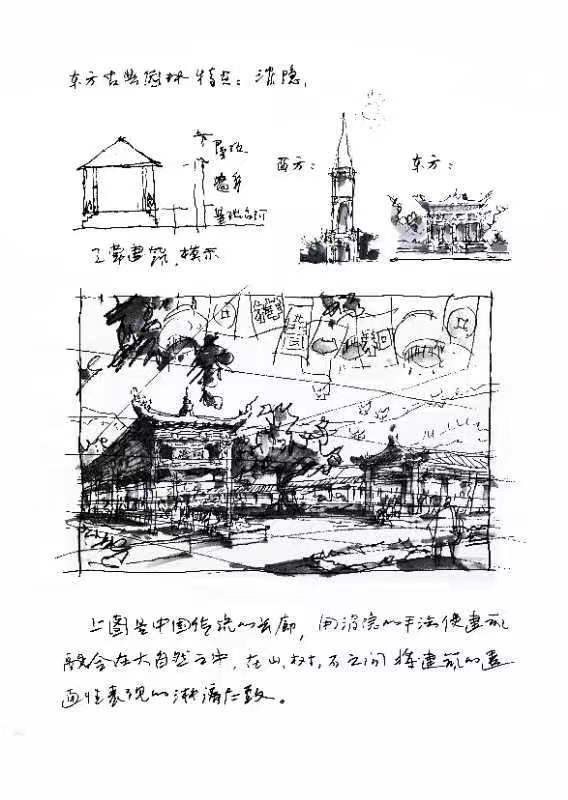 东方古典园林特点：消隐，
屋顶
墙身
基础台阶
西方：
东方：
上图是中国传统的长廊，用消隐的手法使建筑
融合在大自然之中，在山，树，石之间将建筑的画
面性表现的淋漓尽致。